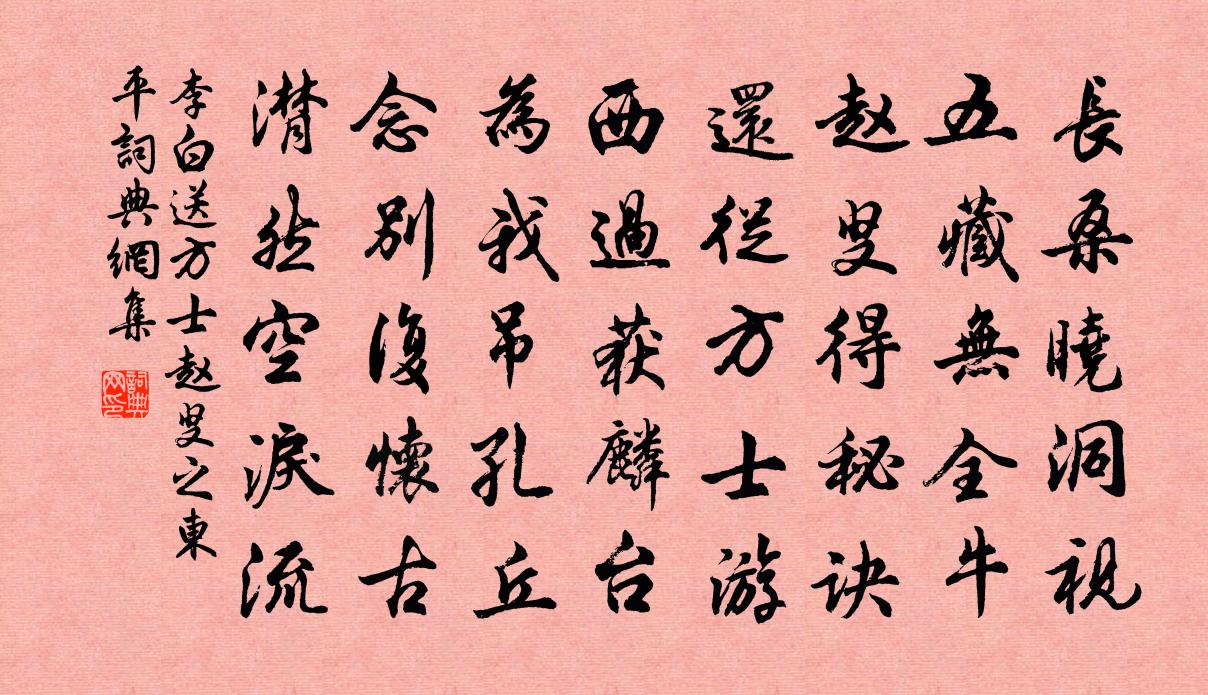 長桑曉洞視
五藏無全牛
赵叟得秘诀
還從方士游
西過获麟台
為我吊孔丘
念別復懷古
潸然空淚流
李白送方士赵叟之東
平詞典網集
詞典
网印